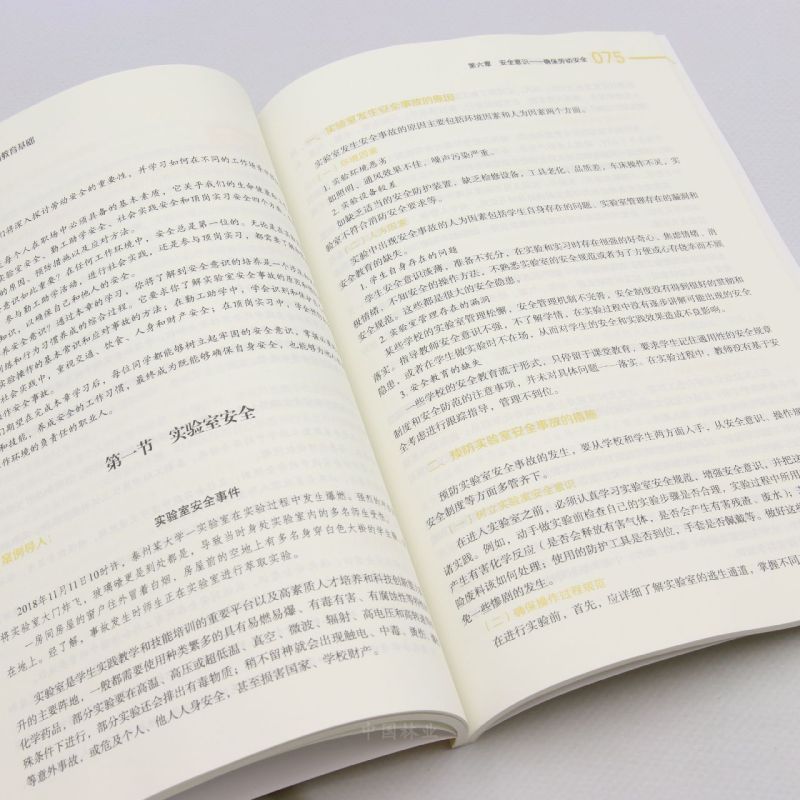 教育基础
们将深入探讨劳动安全的重要性，并学习如何在不同的工作场
每个人在职场中必须具备的基本素质，它关乎我们的生命健康
实验室安全、勤工助学安全、社会实践安全和顶岗实习安全四个方
的原因、预防措施以及应对方法。
意识如此重要？在任何工作环境中，安全总是第一位的。无论是在
、参与勤工助学活动，进行社会实践，还是参与顶岗实习，都需要了解
知识，以确保自己和他人的安全。
养安全意识？通过本章的学习，你将了解到安全意识的培养是一个
训练和行为习惯养成的综合过程。它要求你了解实验室安全事故的原因和
实验操作的基本常识和应对事故的方法；在勤工助学中，学会识别和
社会实践中，重视交通、饮食、人身和财产安全；在顶岗实习中，学会
操作安全事故。
们期望在完成本章学习后，每位同学都能够树立起牢固的安全意识，掌握
和技能，养成安全的工作习惯，最终成为既能够确保自身安全，也能够为
工作环境的负责任的职业人。
第一节 实验室安全
案例导入：
实验室安全事件
2018年11月11日10时许，泰州某大学一实验室在实验过程中发生爆燃。强烈的
将实验室大门炸飞，玻璃碴更是到处都是，导致当时身处实验室内的多名师生受伤。
一房间房屋的窗户往外冒着白烟，房屋前的空地上有多名身穿白色大褂的学生
在地上。经了解，事故发生时师生正在实验室进行萃取实验。
实验室是学生实践教学和技能培训的重要平台以及高素质人才培养和科技创新能力
升的主要阵地，一般都需要使用种类繁多的具有易燃易爆、有毒有害、有腐蚀性等
化学药品，部分实验要在高温、高压或超低温、真空、微波、辐射、高电压和高转速
殊条件下进行，部分实验还会排出有毒物质；稍不留神就会出现触电、中毒、烫伤、
等意外事故，或危及个人、他人人身安全，甚至损害国家、学校财产。
第六章 安全意识——确保劳动安全 075
一、实验室发生安全事故的原因
实验室发生安全事故的原因主要包括环境因素和人为因素两个方面。
（一）环境因素
1. 实验环境恶劣
如照明、通风效果不佳，噪声污染严重。
2. 实验设备较差
如缺乏适当的安全防护装置，缺乏检修设备，工具老化、品质差，车床操作不灵，实
验室不符合消防安全要求等。
（二）人为因素
实验中出现安全事故的人为因素包括学生自身存在的问题、实验室管理存在的漏洞和
安全教育的缺失。
1. 学生自身存在的问题
学生安全意识淡薄，准备不充分，在实验和实习时存在很强的好奇心、焦虑情绪，消
极情绪，不知安全的操作方法，不熟悉实验室的安全规范或者为了方便或心存侥幸而不顾
安全规范。这些都是很大的安全隐患。
2. 实验室管理存在的漏洞
某些学校的实验室管理松懈，安全管理机制不完善，安全制度没有得到很好的贯彻和
落实。指导教师安全意识不强，不了解学情，在实验过程中没有逐步讲解可能出现的安全
隐患，或者在学生做实验时不在场，从而对学生的安全和实践效果造成不良影响。
3. 安全教育的缺失
一些学校的安全教育流于形式，只停留于课堂教育，要求学生记住通用性的安全规章
制度和安全防范的注意事项，并未对具体问题一一落实。在实验过程中，教师没有基于安
全考虑进行跟踪指导，管理不到位。
二、预防实验室安全事故的措施
预防实验室安全事故的发生，要从学校和学生两方面入手，从安全意识、操作规
安全制度等方面多管齐下。
（一）树立实验室安全意识
在进入实验室之前，必须认真学习实验室安全规范，增强安全意识，并把这
诸实践。例如，动手做实验前检查自己的实验步骤是否合理，实验过程中所用
产生有害化学反应（是否会释放有害气体，是否会产生有害残渣、废水）；
险废料该如何处理；使用的防护工具是否到位，手套是否佩戴等。做好这
免一些惨剧的发生。
（二）确保操作过程规范
在进行实验前，首先，应详细了解实验室的逃生通道，掌握不同
中国林业